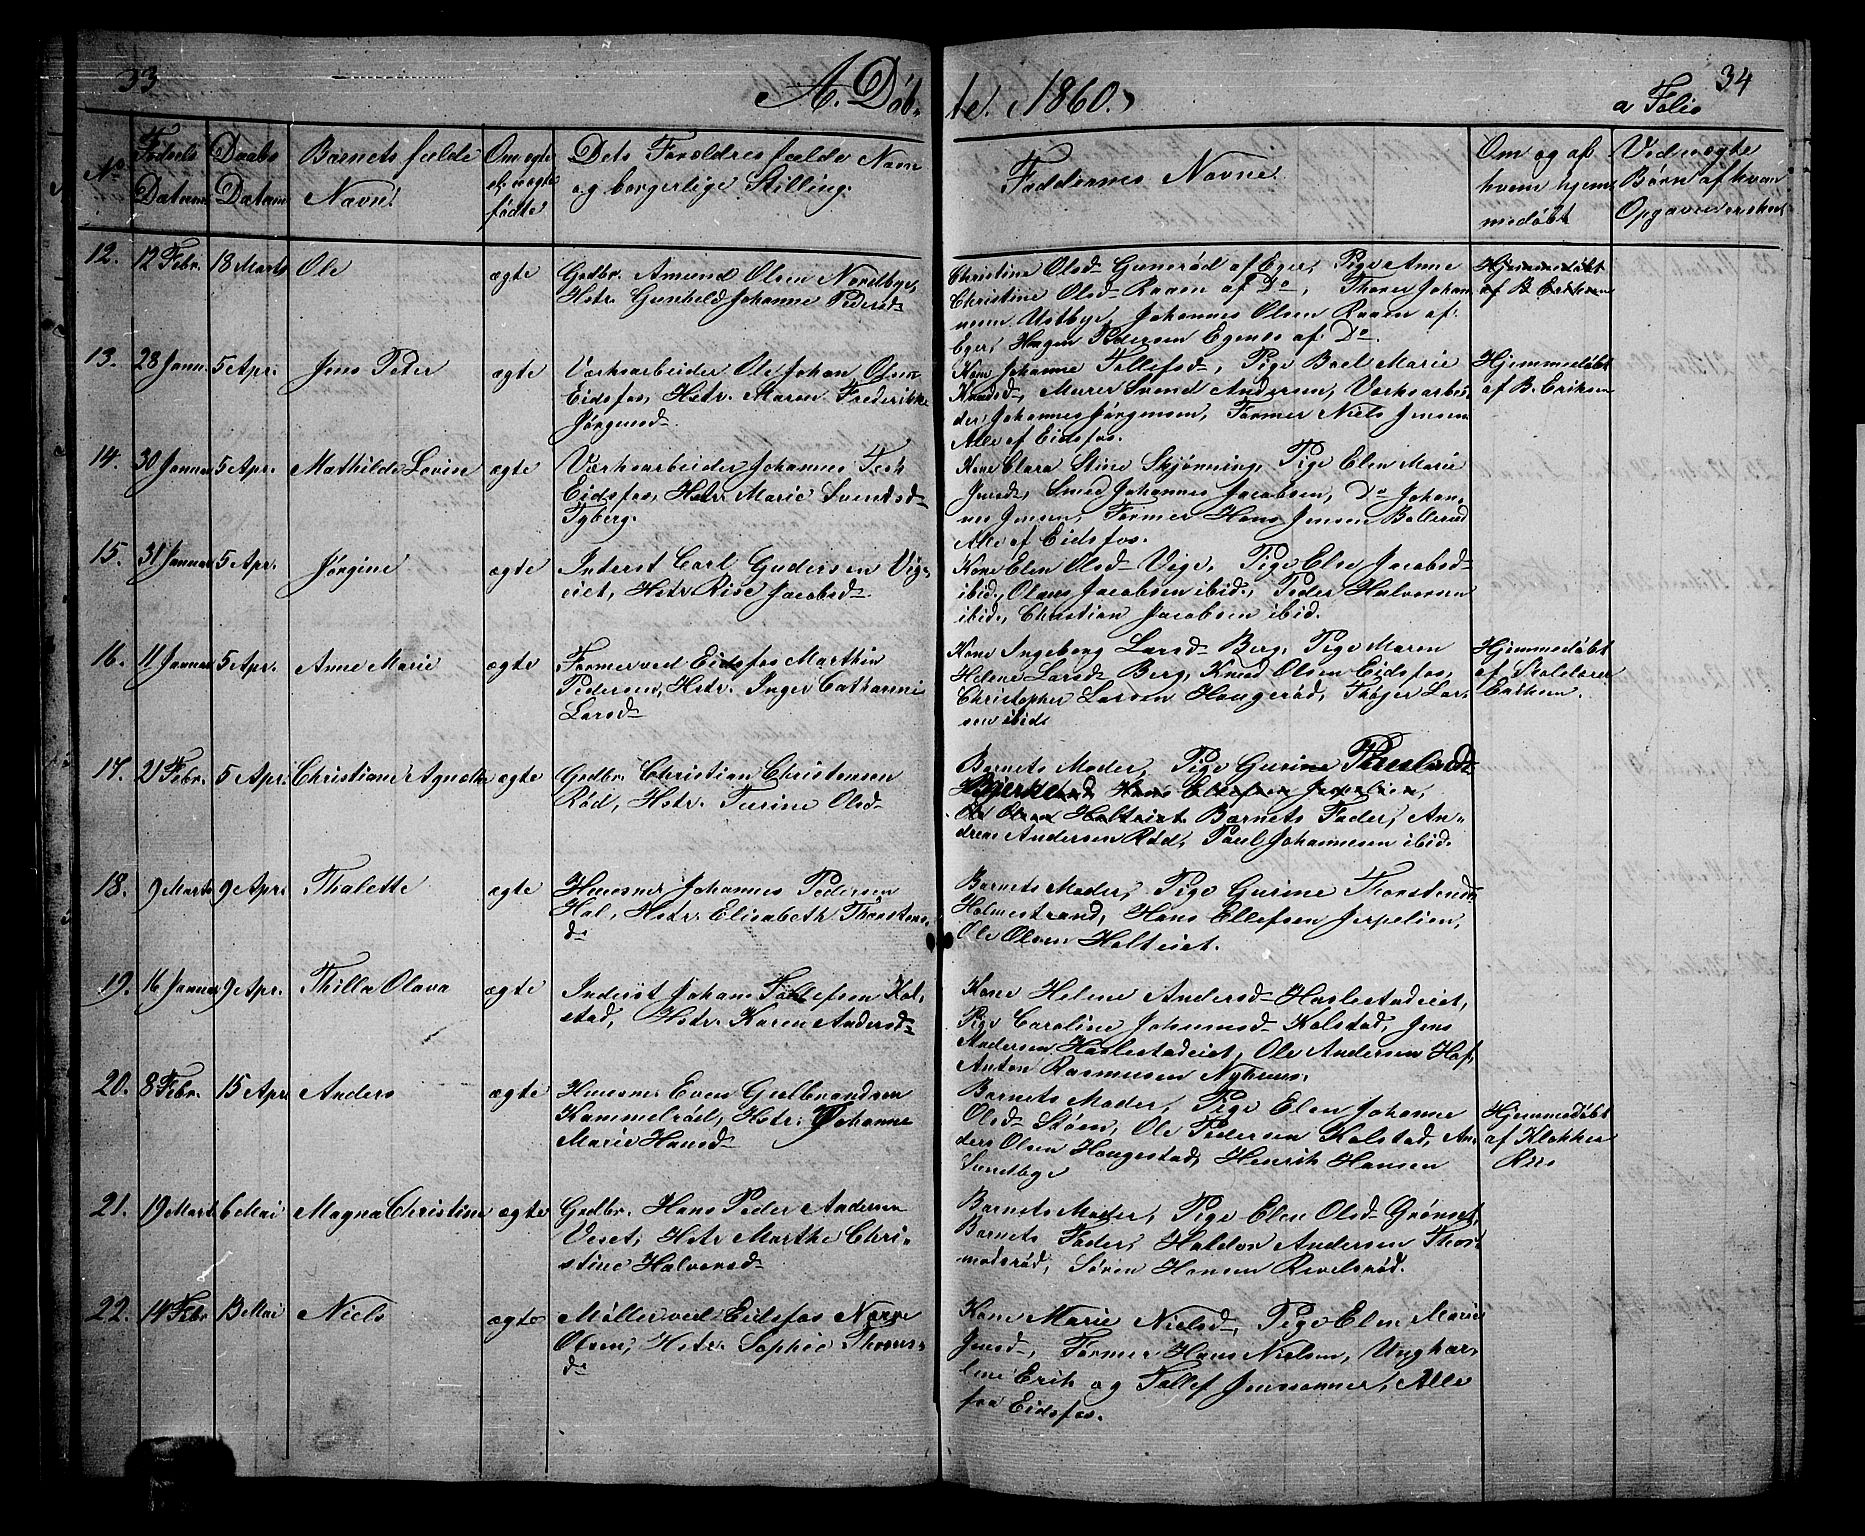 33
A. Døb-
te. 1860.
34
a Folio
No
Fødsels
Datum
Daabs
Datum
Barnets fulde
Navn.
Om ægte
el. uægte
fødte
Dets Forældres fulde Navn
og borgerlige Stilling.
Faddernes Navne
Om og af
hvem hjem-
medøbt
Ved uægte
Børn af hvem
Opgaven er skeet
12. 12 Febr. 18 Marts Ole ægte
Gudbr. Amund Olsen Nordbye,
Hstr. Gunhild Johanne Pedersd.
Christine Olsd. Gunerød af Eger, Pige Anne
Christine Olsd. Raaen af Do, Thorer Johan
nesen Ustbye, Johannes Olsen Raaen af
Eger, Haagen Pedersen Egenes af Do.
Hjemmedøbt
af B. Eriksen
13. 28 Janu. 5 Apr. Jens Peter ægte
Værksarbeider Ole Johan Olsen
Eidsfos, Hstr. Maren Frederikke
Jørgensd.
Kone Johanne Tollefsd., Pige Boel Marie
Knudsd., Murer Svend Andersen, Værksarbei
der Johannes Jørgensen, Former Niels Jensen
Alle af Eidsfos.
Hjemmedøbt
af B. Eriksen
14. 30 Januar 5 Apr. Mathilde Lovise ægte
Værksarbeider Johannes Tesk
Eidsfos, Hstr. Marie Svendsd.
Tyberg.
Kone Clara Stine Skjønning, Pige Elen Marie
Jensd., Smed Johannes Jacobsen, Do Johan-
nes Jensen, Former Hans Jensen Bollerud
Alle af Eidsfos.
15. 31 Januar 5 Apr. Jørgine ægte
Inderst Carl Gudersen Vig-
eiet, Hstr. Rise Jacobsd.
Kone Elen Olsd. Vige, Pige Else Jacobsd.
ibid., Olaus Jacobsen ibid., Peder Halvorsen
ibid., Christian Jacobsen ibid.
16. 11 Januar 5 Apr. Anne Marie ægte
Former ved Eidsfos Marthin
Pedersen, Hstr. Inger Cathrine
Larsd.
Kone Ingeborg Larsd. Berg, Pige Maren
Helene Larsd. Berg, Knud Olsen Eidsfos,
Christopher Larsen Haugerød, Thøger Lar-
sen ibid.
Hjemmedøbt
af Skolelærer
Eriksen.
17. 21 Febr. 5 Apr. Christiane Agnethe ægte
Gudbr. Christian Christensen
Rød, Hstr. Turine Olsd.
Barnets Moder, Pige Gurine
Hans Ellefsen Jerpelien,
Ole Olsen Holteiet Barnets Fader, An-
dreas Andersen Rød, Paul Johannesen ibid.
18. 9 Marts 9 Apr. Thalette ægte
Huusmr. Johannes Pedersen
Hal, Hstr. Elisabeth Thorstens-
d.
Barnets Moder, Pige Gurine Thorstensd.
Holmestrand, Hans Ellefsen Jerpelien,
Ole Olsen Holteiet.
19. 16 Januar 9 Apr. Thilla Olava ægte
Inderst Johan Tollefsen Kol-
stad, Hstr. Karen Andersd.
Kone Helene Andersd. Haslestadeiet,
Pige Caroline Johannesd. Kolstad, Jens
Andersen Haslestadeiet, Ole Andersen Hof,
Anton Rasmusen Nyhuus.
20. 8 Febr. 15 Apr. Anders ægte
Huusmr. Even Gulbrandsen
Kammelrød, Hstr. Johanne
Marie Hansd.
Barnets Moder, Pige Elen Johanne
Olsd. Støen, Ole Pedersen Kolstad, An-
ders Olsen Haugestad, Henrik Hansen
Sundbye
Hjemmedøbt
af Klokker
Riis
21. 19 Marts 6 Mai Magna Christine ægte
Gudbr. Hans Peder Andersen
Veset, Hstr. Marthe Chri-
stine Halvorsd.
Barnets Moder, Pige Elen Olsd. Grønset,
Barnets Fader, Haldor Andersen Thor-
modsrød, Søren Hansen Revelsrød.
22. 14 Febr. 13 Mai Niels ægte
Møller ved Eidsfos Narve
Olsen, Hstr. Sophie Thomes-
d.
Kone Marie Nielsd., Pige Elen Marie
Jensd., Former Hans Nielsen, Ungkar-
lene Erik og Tollef Jenssønner, Alle
fra Eidsfos.